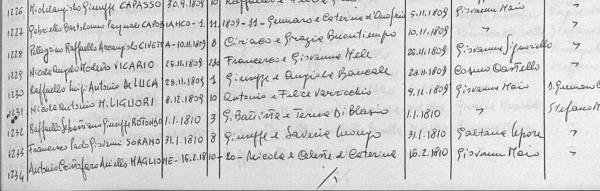 1226 Michelangelo Giuseppe CAPASSO 30.9.1809
1227 Gabriello Bartolomeo Pasquale CAPOBIANCO-1.11.1809-11-Gennaro e Caterina d'Onofrio 5.11.1809 Giovanni Maio "
1228 Pellegrino Raffaello Arcangelo CIVETTA-10.11.1809 8 Ciriaco e Grazia Buontiempo 10.11.1809 " "
1229 Nicola Angelo Modesto VICARIO 26.11.1809 Francesco e Giovanna Mele 26.11.1809 Giovanna Signoriello "
1230 Raffaello Luigi Antonio De LUCA 28.11.1809 1 Giuseppe e Angiola 28.11.1809 Cosmo Castello "
1231 Nicola Antonio M. LIGUORI 8.12.1809 10 Antonio e Felice Verricchio 9.12.1809 Giovanni Maio
1232 Raffaello Sebastiano Giuseppe ROTONDO 1.1.1810 3 G. Battista e Teresa Di Blasio 1.1.1810 " Stefano
1233 Francesco Paolo Giovanni SORANO 31.1.1810 8 Giuseppe e Saveria Luongo 31.1.1810 Gaetana Lepore "
1234 Antonio Aniello MAGLIONE-16.2.1810-20-Nicola e Celeste d'Caterina 16.2.1810 Giovanni Maio "